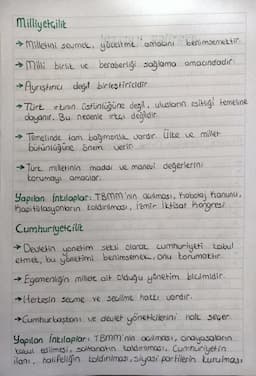 Milliyetçilik
→ Milletini sevmek, yüceltme amacını benimsemektir.
→ Milli birlik ve beraberliği sağlama amacındadır.
→ Ayrıştırıcı değil birleştiricidir.
→ Türk ırkının üstünlüğüne değil, ulusların eşitliği temeline
dayanır. Bu nedenle ırkçı değildir.
→ Temelinde tam bağımsızlık vardır. Ülke ve millet
bütünlüğüne önem verir.
→ Türk milletinin maddi ve manevi değerlerini
korumayı amaçlar.
Yapılan İnkılaplar: TBMM'nin açılması, Kabotaj Kanunu,
Kapitülasyonların kaldırılması, İzmir İktisat Kongresi
Cumhuriyetçilik
→ Devletin yönetim şekli olarak cumhuriyeti kabul
etmek, bu yönetimi benimsemek, onu korumaktır.
→ Egemenliğin millete ait olduğu yönetim biçimidir.
→ Herkesin seçme ve seçilme hakkı vardır.
→ Cumhurbaşkanı ve devlet yöneticilerini halk seçer.
Yapılan İnkılaplar: TBMM'nin açılması, anayasaların
kabul edilmesi, saltanatın kaldırılması, Cumhuriyetin
ilanı, halifeliğin kaldırılması, siyasi partilerin kurulması